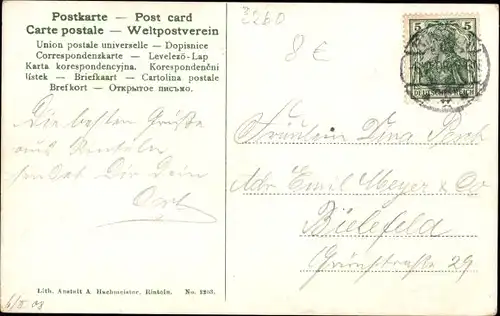 Postkarte — Post card
Carte postale — Weltpostverein
Union postale universelle — Dopisnice
Correspondenzkarte — Levelező-Lap
Karta korespondencyjna. Korespondenční
lístek — Briefkaart — Cartolina postale
Brefkort — Открытое письмо.
3260
8 €
5 5
DEUTSCHES REICH
Die besten Grüße
aus Rinteln
sendet Dir Dein
Fräulein
Adr. Emil Meyer & Co
Bielefeld
Grünstraße 29
Lith. Anstalt A. Hachmeister, Rinteln. No. 2203.